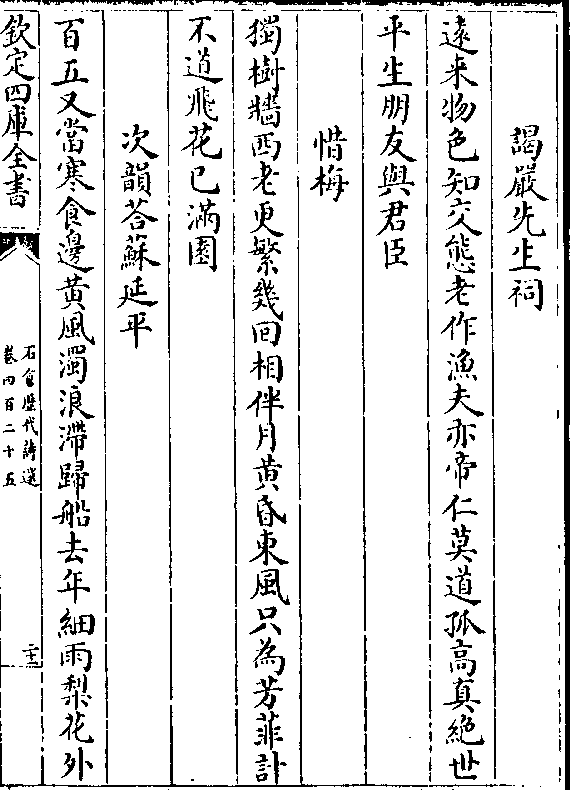 謁嚴先生祠
逺来物色知交態老作漁夫亦帝仁莫道孤高真絶世
平生朋友與君臣
惜梅
獨樹牆西老更繁幾回相伴月黄昏東風只為芳菲計
不道飛花已滿園
次韻荅蘇延平
百五又當寒食邊黄風濁浪滯歸船去年細雨梨花外
欽定四庫全書
石倉歴代詩選
卷四百二十五
二十三